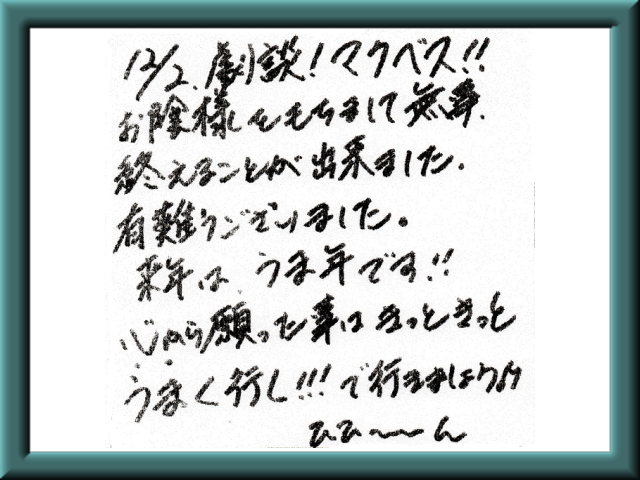 12/2.劇談!マクベス!!
お陰様をもちまして無事.
終えることが出来ました.
有難うございました。
来年は、うま年です!!
心から願った事はきっときっと
うまく行く!!!で行きましょう
ひひ〜〜ん